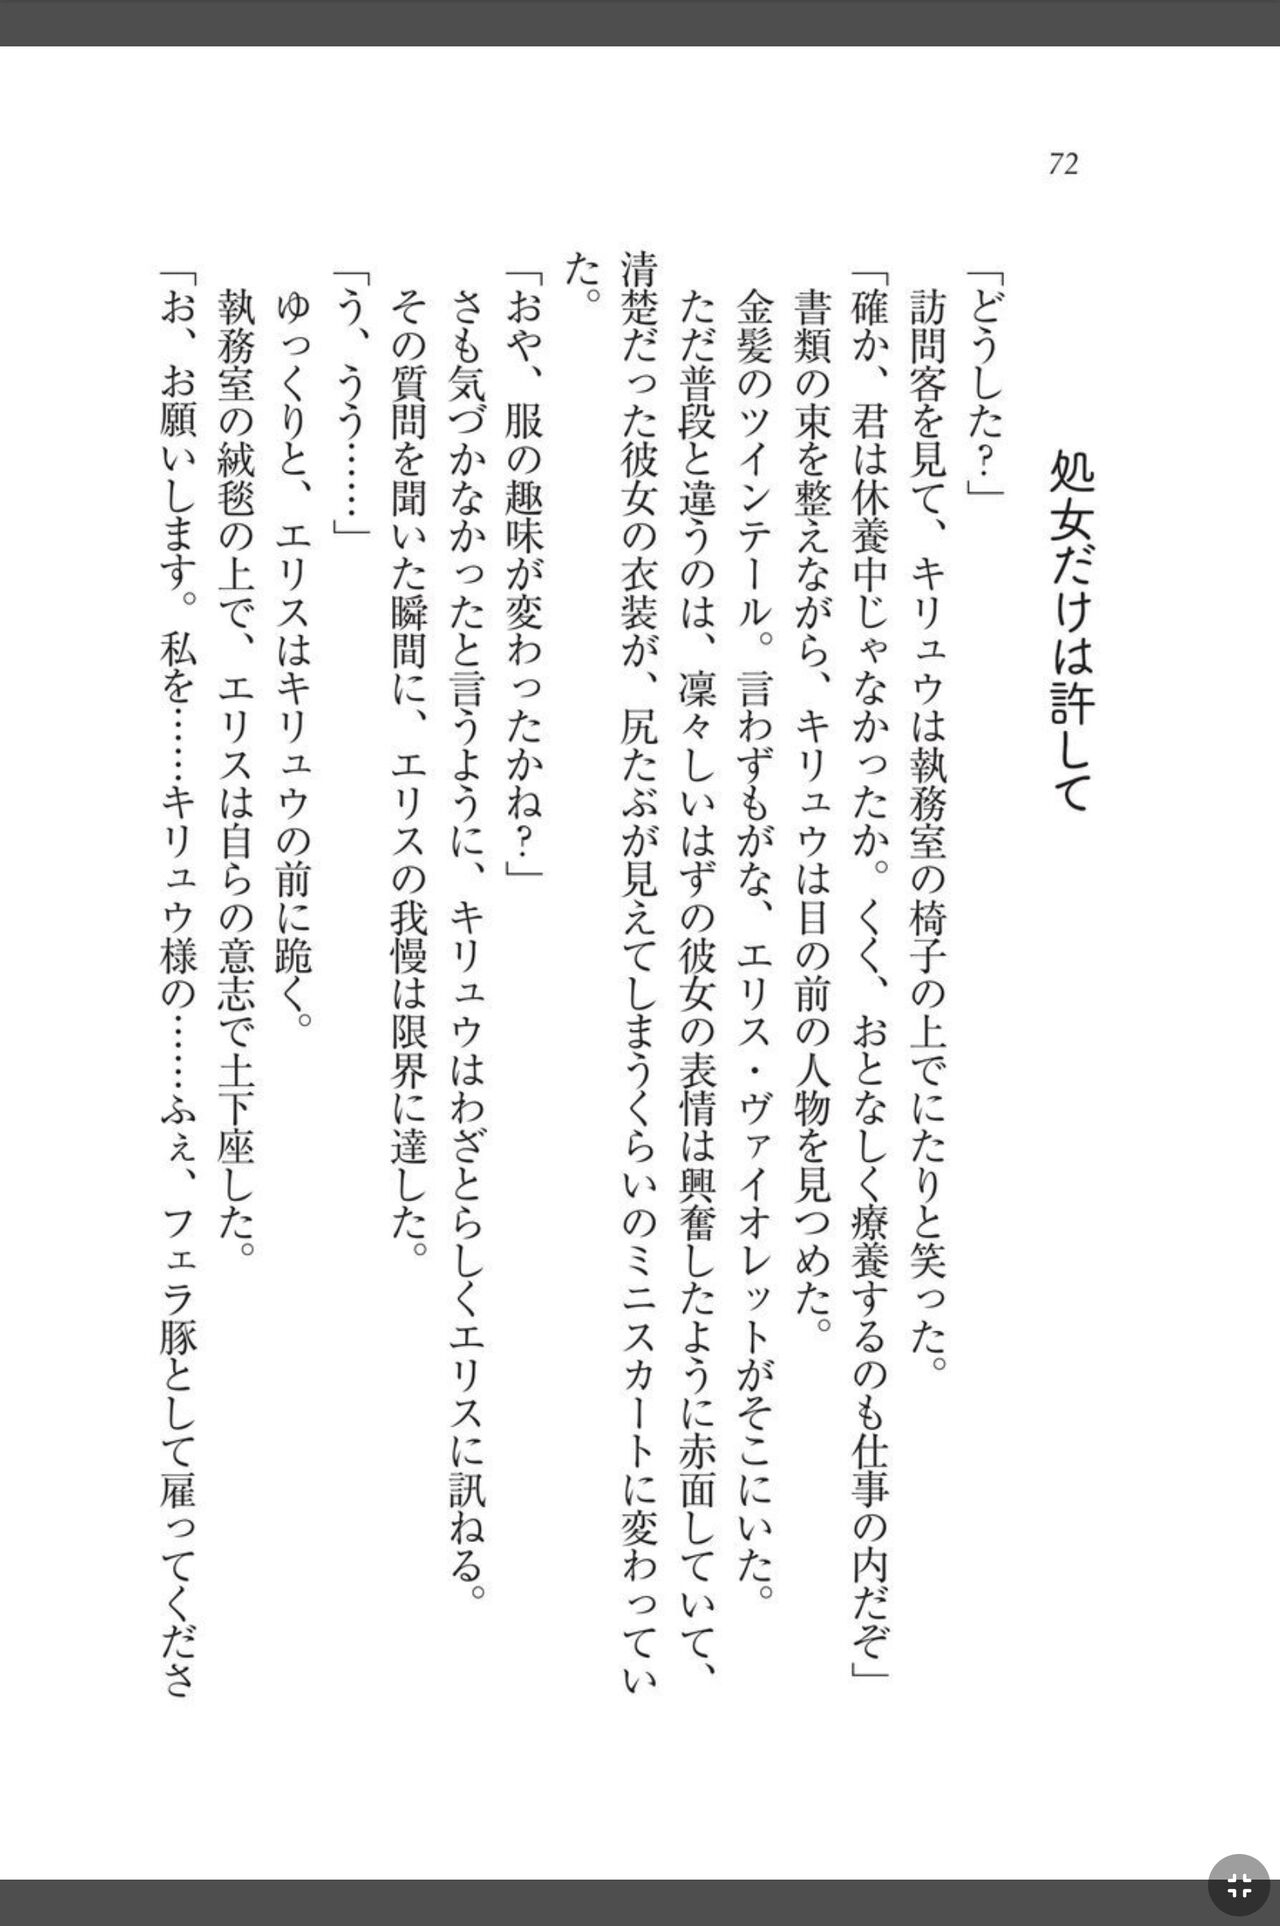 72
処女だけは許して
「どうした?」
訪問客を見て、キリュウは執務室の椅子の上でにたりと笑った。
「確か、君は休養中じゃなかったか。くく、おとなしく療養するのも仕事の内だぞ」
書類の束を整えながら、キリュウは目の前の人物を見つめた。
金髪のツインテール。言わずもがな、エリス・ヴァイオレットがそこにいた。
ただ普段と違うのは、凛々しいはずの彼女の表情は興奮したように赤面していて、
清楚だった彼女の衣装が、尻たぶが見えてしまうくらいのミニスカートに変わってい
た。
「おや、服の趣味が変わったかね?」
さも気づかなかったと言うように、キリュウはわざとらしくエリスに訊ねる。
その質問を聞いた瞬間に、エリスの我慢は限界に達した。
「う、うう……」
ゆっくりと、エリスはキリュウの前に跪く。
執務室の絨毯の上で、エリスは自らの意志で土下座した。
「お、お願いします。私を……キリュウ様の……ふぇ、フェラ豚として雇ってくださ